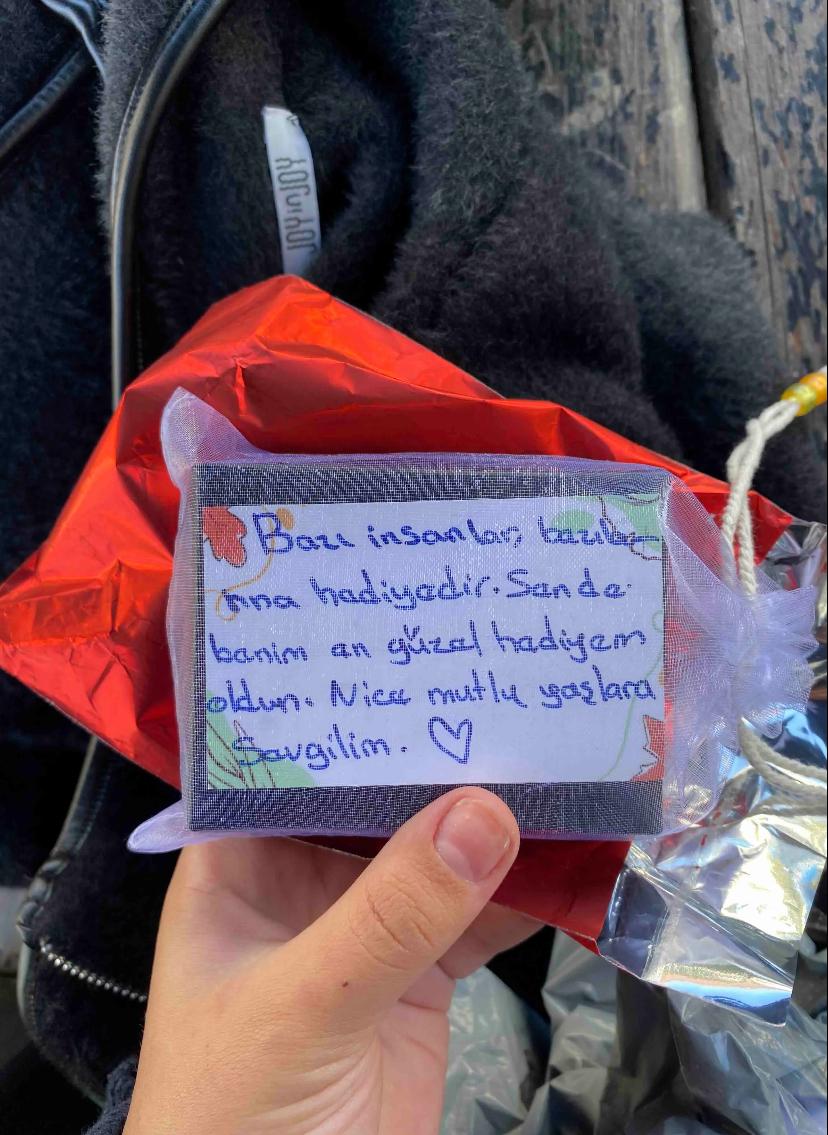 JOY in JOY
Bazı insanlar, bazıla-
rına hediyedir. Sen de
benim en güzel hediyem
oldun. Nice mutlu yaşlara
Sevgilim. ♡